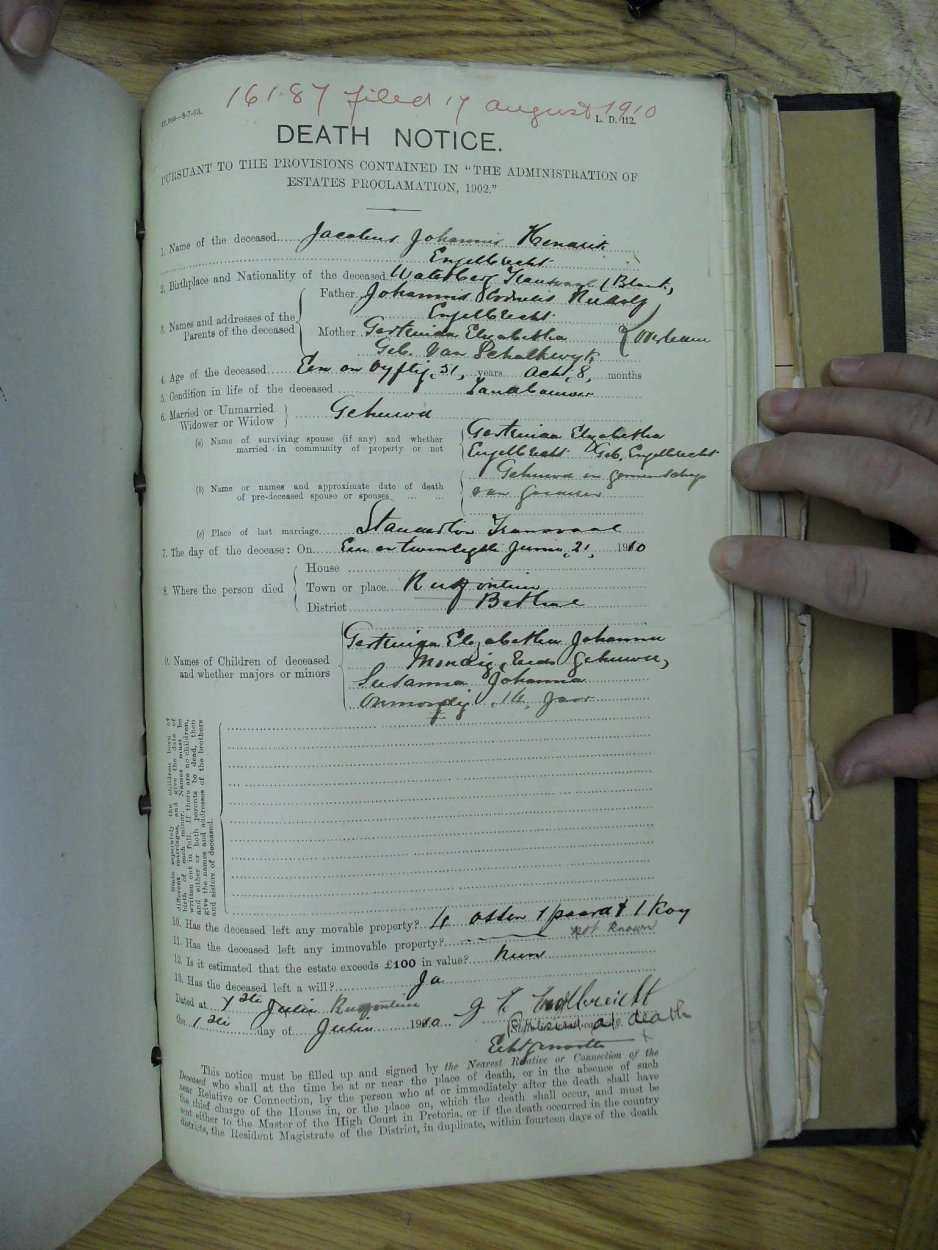 16187 filed 17 august 1910
L. D. 112.
DEATH NOTICE.
PURSUANT TO THE PROVISIONS CONTAINED IN "THE ADMINISTRATION OF
ESTATES PROCLAMATION, 1902."
1. Name of the deceased Jacobus Johannis Hendrik
Engelbrecht
2. Birthplace and Nationality of the deceased Transvaal (Blank)
3. Names and addresses of the Parents of the deceased
Father Johannis Rudolf
Engelbrecht
Mother Gertruida Elizabetha Overleden
Geb. Van Schalkwyk
4. Age of the deceased Een en vyftig, 51, years Acht, 8, months
5. Condition in life of the deceased Landbouwer
6. Married or Unmarried
Widower or Widow Gehuwd
(a) Name of surviving spouse (if any) and whether
married in community of property or not
Gertruida Elizabetha
Engelbrecht Geb. Engelbrecht
Gehuwd in gemeenschap
van goederen
(b) Name or names and approximate date of death
of pre-deceased spouse or spouses
(c) Place of last marriage Standerton Transvaal
7. The day of the decease: On Een en twintigste Junie, 21, 1910
8. Where the person died
House
Town or place Rusfontein
District Bethal
9. Names of Children of deceased
and whether majors or minors
Gertruida Elizabetha Johanna
Mondig, Gehuwd,
Susanna Johanna
Onmondig, 16, Jaar
State separately the children, born of
different marriages, and give the date of
birth of each minor. Names must be
written out in full. If there are no children,
and either or both parents be dead, then
give the names and addresses of the brothers
and sisters of deceased.
10. Has the deceased left any movable property? 4 ossen 1 paard & 1 Koy
11. Has the deceased left any immovable property? not known
12. Is it estimated that the estate exceeds £100 in value?
13. Has the deceased left a will? Ja
Dated at Julie Rusfontein
the 1ste day of Julie 1910
Present at death
Echtgenoote
This notice must be filled up and signed by the Nearest Relative or Connection of the
Deceased who shall at the time be at or near the place of death, or in the absence of such
near Relative or Connection, by the person who at or immediately after the death shall have
the chief charge of the House in, or the place on, which the death shall occur, and must be
sent either to the Master of the High Court in Pretoria, or if the death occurred in the country
districts, the Resident Magistrate of the District, in duplicate, within fourteen days of the death